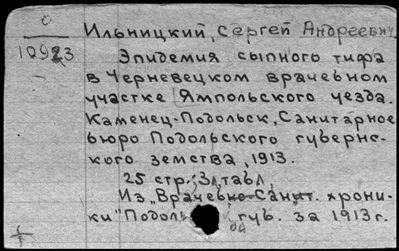 0
10923
Ильницкий, Сергей Андреевич.
Эпидемия сыпного тифа
в Черневецком врачебном
участке Ямпольского уезда.
Каменец-Подольск, Санитарное
бюро Подольского губернс-
кого земства, 1913.
25 стр.; 3 л. табл.
Из „Врачебно-Санит. хрони-
ки" Подоль губ. за 1913 г.